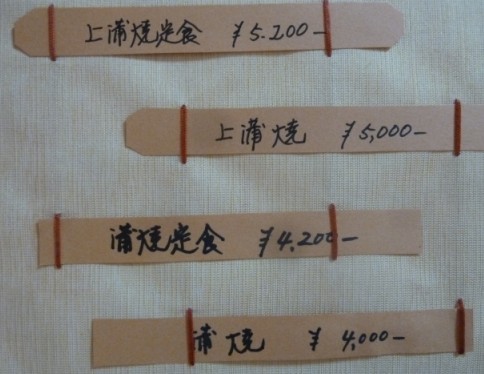 上蒲焼定食 ¥5.200-
上蒲焼 ¥5,000-
蒲焼定食 ¥4.200-
蒲焼 ¥4,000-